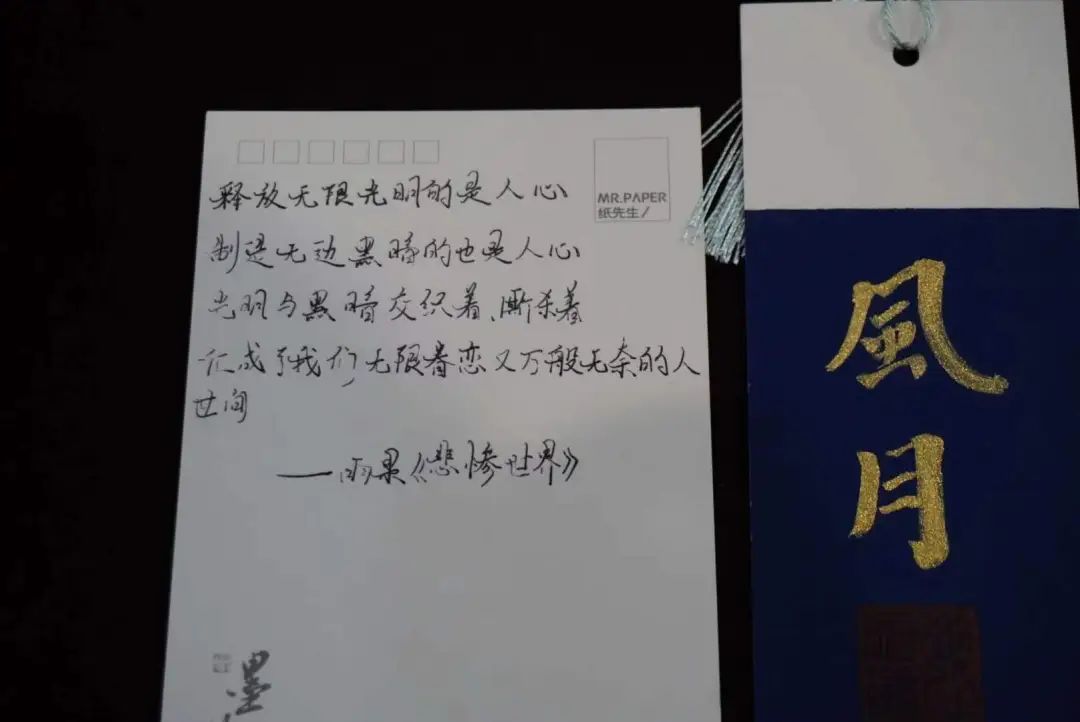 释放无限光明的是人心
制造无边黑暗的也是人心
光明与黑暗交织着、厮杀着
汇成了我们无限眷恋又万般无奈的人
世间
——雨果《悲惨世界》
MR.PAPER
纸先生/
墨
風
月